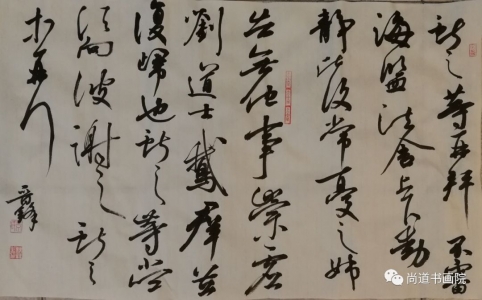 獻之等再拜 不審
海鹽諸舍上下動
靜比復常憂之姊
告無他事崇虛
劉道士鵞群並
復歸也獻之等當
須向彼謝之獻之
等再拜
尚道书画院